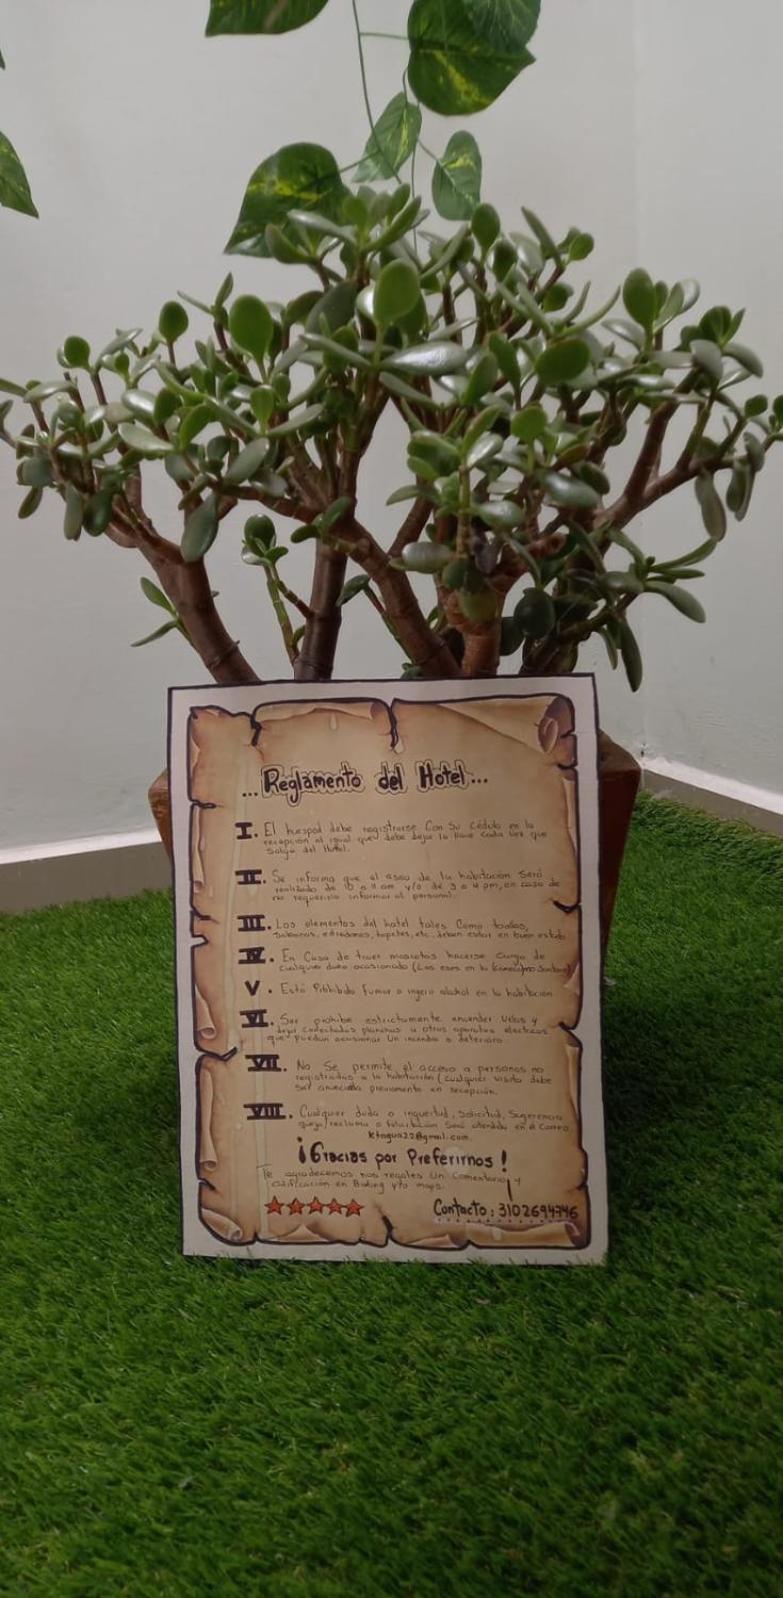 ...Reglamento del Hotel...
I. El huesped debe registrarse Con Su Cédula en la
recepción al igual que debe dejar la llave cada vez que
Salga del Hotel.
II. Se informa que el aseo de la habitación Será
realizado de 10 a 11 am y/o de 3 a 4 pm, en caso de
no requerirlo informar al personal.
III. Los elementos del hotel tales Como toallas,
edredones, tapetes, etc. deben estar en buen estado
IV. En Caso de traer mascotas hacerse cargo de
cualquier daño ocasionado (Las eses en la
V. Está Prohibido Fumar o ingerir alcohol en la habitación
VI. Se prohibe estrictamente encender Velas y
dejar conectados planchas u otros aparatos electricos
que puedan ocasionar Un incendio o deterioro.
VII. No Se permite el acceso a personas no
registradas a la habitación (cualquier visita debe
ser anunciada previamente en recepción.
VIII. Cualquier duda o inquietud, Solicitud, Sugerencia
queja/reclamo o felicitación Será atendida en el Correo
ktagua22@gmail.com.
¡Gracias por Preferirnos!
Te agradecemos nos regales Un Comentario y
calificación en Boking y/o maps.
Contacto: 3102694746